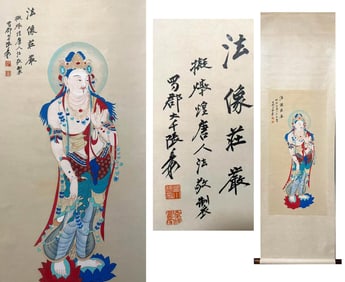 法像莊嚴
擬燉煌唐人法敬製
蜀郡大千張爰
法像莊嚴
擬燉煌唐人法敬製
蜀郡大千張爰
法像莊嚴